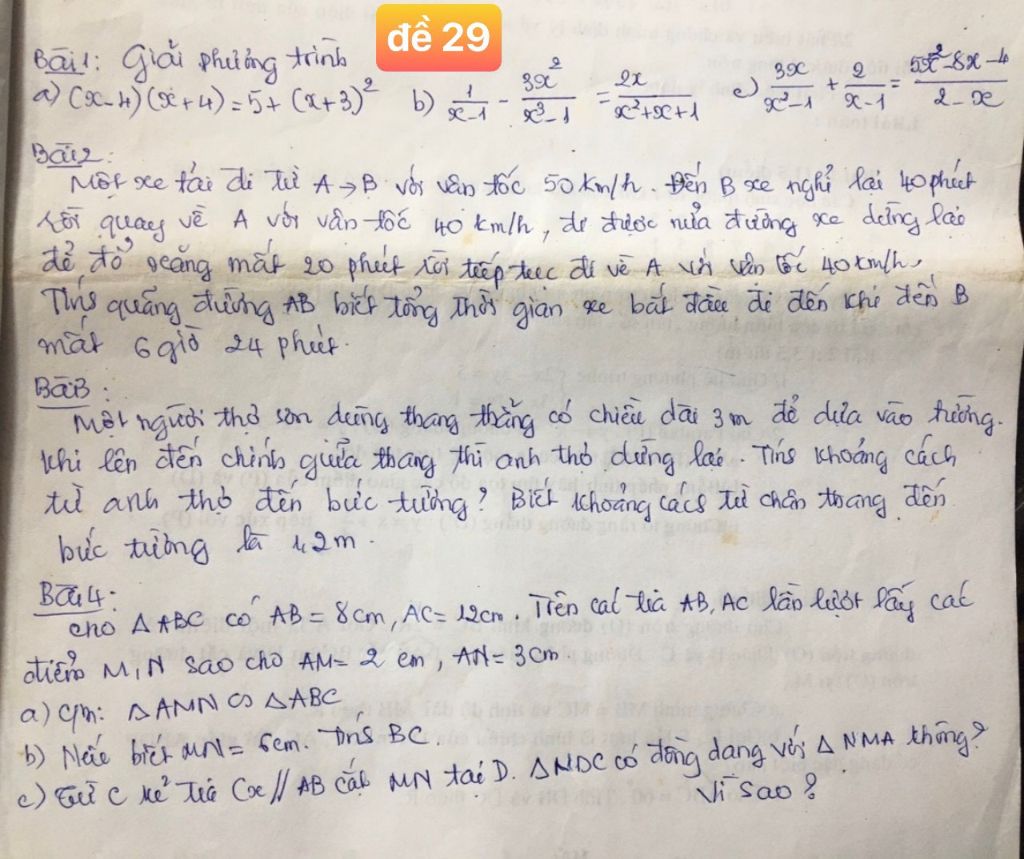 đề 29
Bài 1: Giải phương trình
a) (x-4)(x+4) = 5+ (x+3)² b) 1/(x-1) - 3x²/(x³-1) = 2x/(x²+x+1) c) 3x/(x²-1) + 2/(x-1) = (5x²-8x-4)/(2-x)
Bài 2:
Một xe tải đi từ A → B với vận tốc 50 km/h. Đến B xe nghỉ lại 40 phút
rồi quay về A với vận tốc 40 km/h, đi được nửa đường xe dừng lại
để đổ xăng mất 20 phút rồi tiếp tục đi về A với vận tốc 40 km/h.
Tính quãng đường AB biết tổng thời gian xe bắt đầu đi đến khi đến B
mất 6 giờ 24 phút.
Bài 3:
Một người thợ sơn dùng thang thẳng có chiều dài 3 m để dựa vào tường.
Khi lên đến chính giữa thang thì anh thợ dừng lại. Tính khoảng cách
từ anh thợ đến bức tường? Biết khoảng cách từ chân thang đến
bức tường là 1,2m.
Bài 4:
cho △ABC có AB = 8cm, AC = 12cm. Trên các tia AB, AC lần lượt lấy các
điểm M, N sao cho AM = 2 cm, AN = 3cm
a) c/m: △AMN ∽ △ABC
b) Nếu biết MN = 6cm. Tính BC.
c) Từ C kẻ tia Cx // AB cắt MN tại D. △NDC có đồng dạng với △NMA không?
Vì sao?